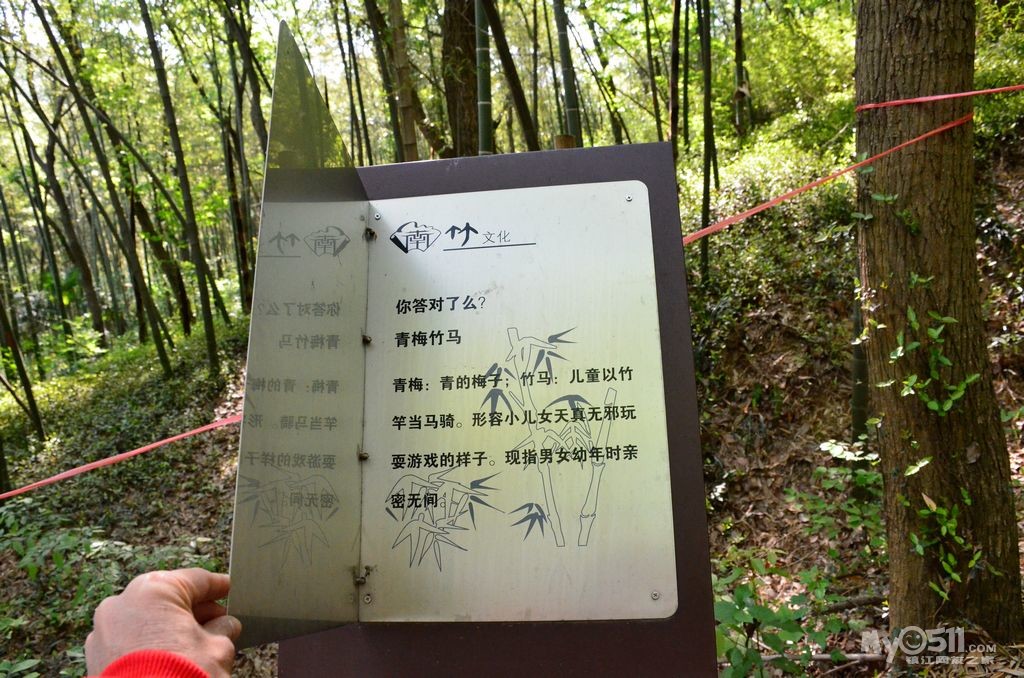 南竹文化
你答对了么？
青梅竹马
青梅：青的梅子；竹马：儿童以竹
竿当马骑。形容小儿女天真无邪玩
耍游戏的样子。现指男女幼年时亲
密无间。
My0511.COM
镇江网友之家